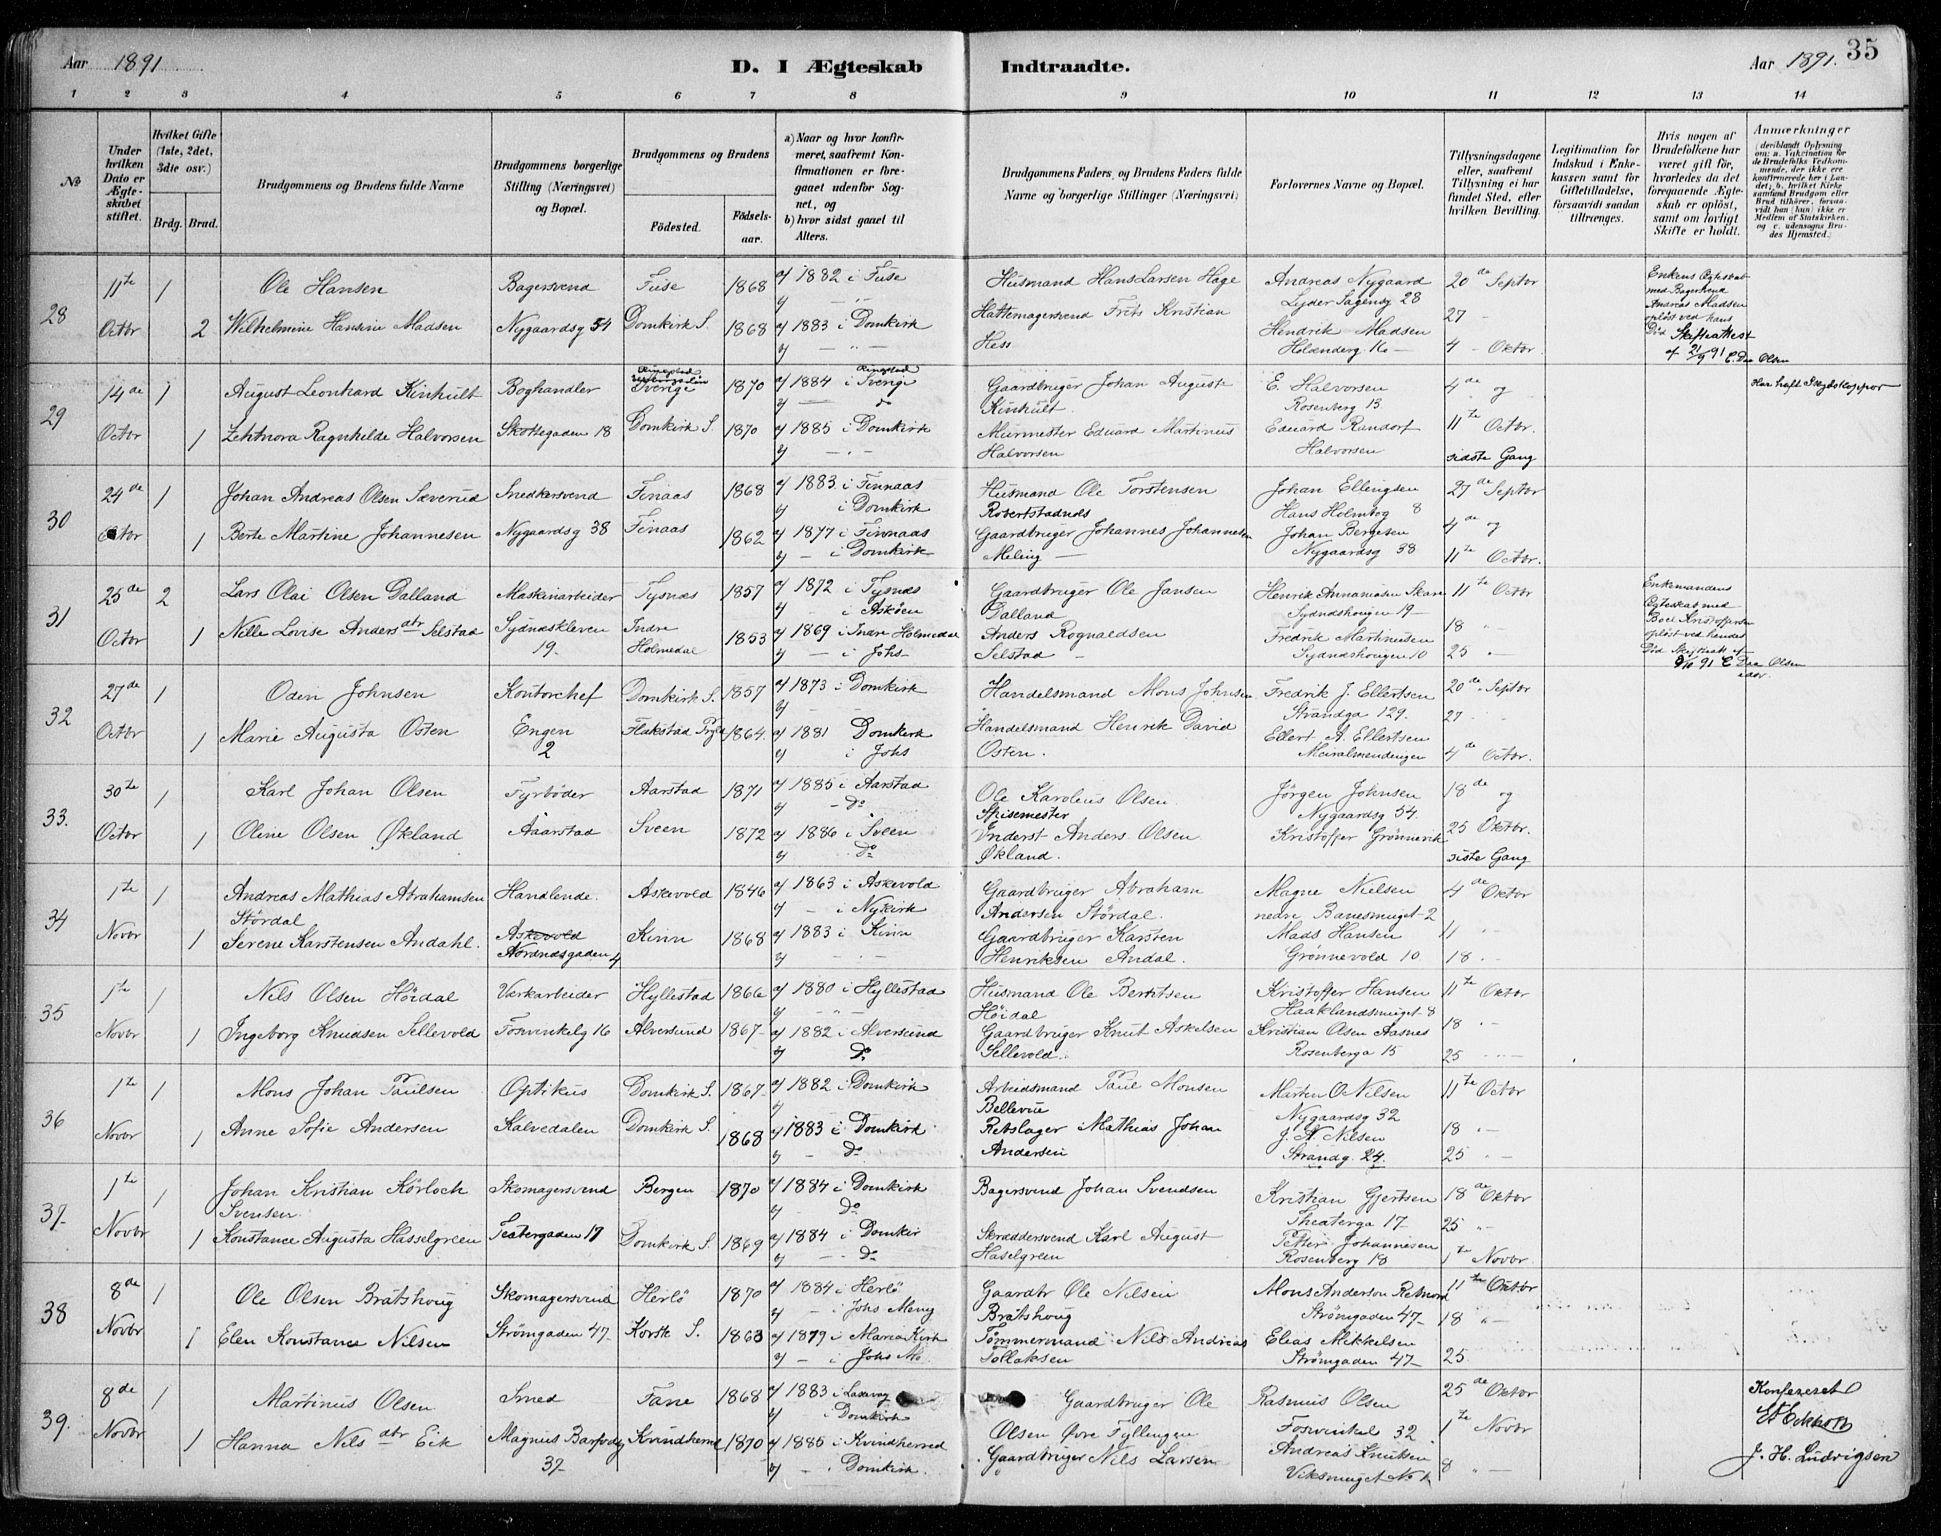 Aar 1891
D. I Ægteskab Indtraadte.
Aar 1891. 35
1 2 3 4 5 6 7 8 9 10 11 12 13 14
No
Under hvilken Dato er Ægteskabet stiftet.
Hvilket Gifte (1ste, 2det, 3die osv.)
Brdg. Brud.
Brudgommens og Brudens fulde Navne
Brudgommens borgerlige Stilling (Næringsvei) og Bopæl.
Brudgommens og Brudens
Fødested. Fødselsaar.
a) Naar og hvor konfirmeret, saafremt Konfirmationen er foregaaet udenfor Sognet, og
b) hvor sidst gaaet til Alters.
Brudgommens Faders, og Brudens Faders fulde Navne og borgerlige Stillinger (Næringsvei)
Forlovernes Navne og Bopæl.
Tillysningsdagene eller, saafremt Tillysning ei har fundet Sted, efter hvilken Bevilling.
Legitimation for Indskud i Enkekassen samt for Giftetilladelse, forsaavidt saadan tiltrænges.
Hvis nogen af Brudefolkene har været gift før, hvorledes da det foregaaende Ægteskab er opløst, samt om lovligt Skifte er holdt.
Anmærkninger (deriblandt Oplysning om: a. Vakcination for de Brudefolks Vedkommende, der ikke ere konfirmerede her i Landet; b. hvilket Kirkesamfund Brudgom eller Brud tilhører, forsaavidt han (hun) ikke er Medlem af Statskirken, og c. udensogns Brudes Hjemsted.)
28 11te Octbr 1 Ole Hansen Bagersvend Fuse 1868 a) 1882 i Fuse Husmand Hans Larsen Hage Andreas Nygaard Lyder Sagensg 28 20de Septbr
2 Wilhelmine Hansine Madsen Nygaardsg 54 Domkirk S. 1868 a) 1883 i Domkirk Hattemagersvend Frits Kristian Hess Hendrik Madsen Holænderg 16 27 - 4 - Oktbr.
Enkens Ægteskab med Bagersvend Andreas Madsen opløst ved hans Død Skifteattest af 21/9 91 E. Daa Olsen
29 14de Octbr 1 August Leonhard Kinhult Boghandler Sverige 1870 a) 1884 i Sverige Gaardbruger Johan August Kinhult. E. Halvorsen Rosenberg 13 4de og
1 Ragnhilde Halvorsen Skottegaden 18 Domkirk S. 1870 a) 1885 i Domkirk Murmester Eduard Martinus Halvorsen Eduard Randorf Halvorsen 11te Octbr. sidste Gang
30 24de Octbr 1 Johan Andreas Olsen Sæverud Snedkersvend Finaas 1868 a) 1883 i Finnaas b) i Domkirk Husmand Ole Torstensen Johan Ellingsen Hans Holmbog 8 27de Septbr
1 Berte Martine Johannesen Nygaardsg 38 Finaas 1862 a) 1877 i Finnaas b) - i Domkirk Gaardbruger Johannes Johannesen Meling Johan Bergesen Nygaardsg 38 4de og 11te Octbr.
31 25de Octbr 2 Lars Olai Olsen Dalland Maskinarbeider Tysnæs 1857 a) 1872 i Tysnæs b) - i Askøen Gaardbruger Ole Jansen Dalland Henrik Annaniasen Skare Sydnæshougen 19 11te Octbr
1 Nille Lovise Andersdtr Selstad Sydnæskleven 19 Indre Holmedal 1853 a) 1869 i Indre Holmedal b) - i Johs Anders Rognaldsen Selstad Fredrik Martinusen Sydnæshougen 10 18 25
Enkemandens Ægteskab med Boel Kristoffersen opløst ved hendes Død E Daa Olsen
32 27de Octbr 1 Oden Johnsen Kontorchef Domkirk S. 1857 a) 1873 i Domkirk Handelsmand Mons Johnsen Fredrik J. Ellertsen Strandga 129. 20de Septbr
1 Marie Augusta Osten Engen 2 1864 a) 1881 Domkirk b) i Johs Handelsmand Henrik David Osten. Ellert A. Ellertsen Muralmendingen 27 4de Octbr.
33. 30te Octbr 1 Karl Johan Olsen Fyrbøder Aarstad 1871 a) 1885 i Aarstad b) - Do Ole Karolius Olsen. Jörgen Johnsen Nygaardsg 54. 18de og
1 Oline Olsen Økland Aaarstad Sveen 1872 a) 1886 i Sveen b) Do Anders Olsen Økland. Kristoffer Grönnevik 25 Oktbr. siste Gang
34 1te Novbr 1 Andreas Mathias Abrahamsen Stördal Handlende. Askevold 1846 a) 1863 i Askevold b) - i Nykirk Gaardbruger Abraham Andersen Stördal. Magne Nielsen nedre Banesmuget 2 4de Oktbr
1 Serene Karstensen Andahl. Askevold Nordnæsgaden 4 Kinn 1868 a) 1883 i Kinn Gaardbruger Karsten Henriksen Andal. Mads Hansen Grønnevold 10 11 18
35 1te Novbr 1 Nils Olsen Hördal Værkarbeider Hyllestad 1866 a) 1880 i Hyllestad Husmand Ole Berntsen Hördal Kristoffer Hansen Haaklandsmuget 8 11te Oktbr
1 Ingeborg Knudsen Sellevold Fosvinkelg 16 Alversund 1867 a) 1882 i Alversund b) Do Gaardbruger Knut Askelsen Sellevold. Kristian Olsen Aasnes Rosenberga 15 18 25
36 1te Novbr 1 Mons Johan Paulsen Optikus Domkirk S. 1867 a) 1882 i Domkirk Arbeidsmand Paul Monsen Bellevue Martin O Nilsen Nygaardsg 32 11te Octbr
1 Anne Sofie Andersen Kalvedalen Domkirk S. 1868 a) 1883 i Domkirk b) - Do Rebslager Mathias Johan Andersen J. N. Nilsen Strandg. 24. 18 25
37 1te Novbr 1 Johan Kristian Körloch Svensen. Skomagersvend Bergen 1870 a) 1884 i Domkirk b) - Do Bagersvend Johan Svendsen Kristian Gjertsen Theaterga 17 18de Oktbr
1 Konstance Augusta Hasselgreen Teatergaden 17 Domkirk S. 1869 a) 1884 i Domkir b) - Do Skræddersvend Karl August Haselgreen Petter Johannesen Rosenberg 18 25 1te Novbr
38 8de Novbr 1 Ole Olsen Bratshoug Skomagersvend Herlö 1870 a) 1884 i Herlö b) - i Johs Menig Gaardbr Ole Nilsen Bratshoug Mons Anderson Strömgaden 47 11te Oktbr
1 Elen Konstance Nilsen Strömgaden 47 Korsk S. 1863 a) 1879 i Maria Kirk b) - i Johs Me. Tømmermand Nils Andreas Tollaksen Elias Mikkelsen Strömgaden 47 18 25.
39. 8de Novbr 1 Martinus Olsen Smed Fane 1868 a) 1883 i Laxevag b) i Domkirk Gaardbruger Ole Olsen Øvre Fyllingen Rasmus Olsen Fosvinkel 32 25de Oktbr
1 Hanna Nilsdtr Eik Magnus Barfodsg 37 Kvindherred 1870 a) 1885 i Kvindherred b) - i Domkirk. Gaardbruger Nils Larsen Andreas Knutsen Viksmuget 1te Novbr 8
Konfereret
J. H. Ludvigsen